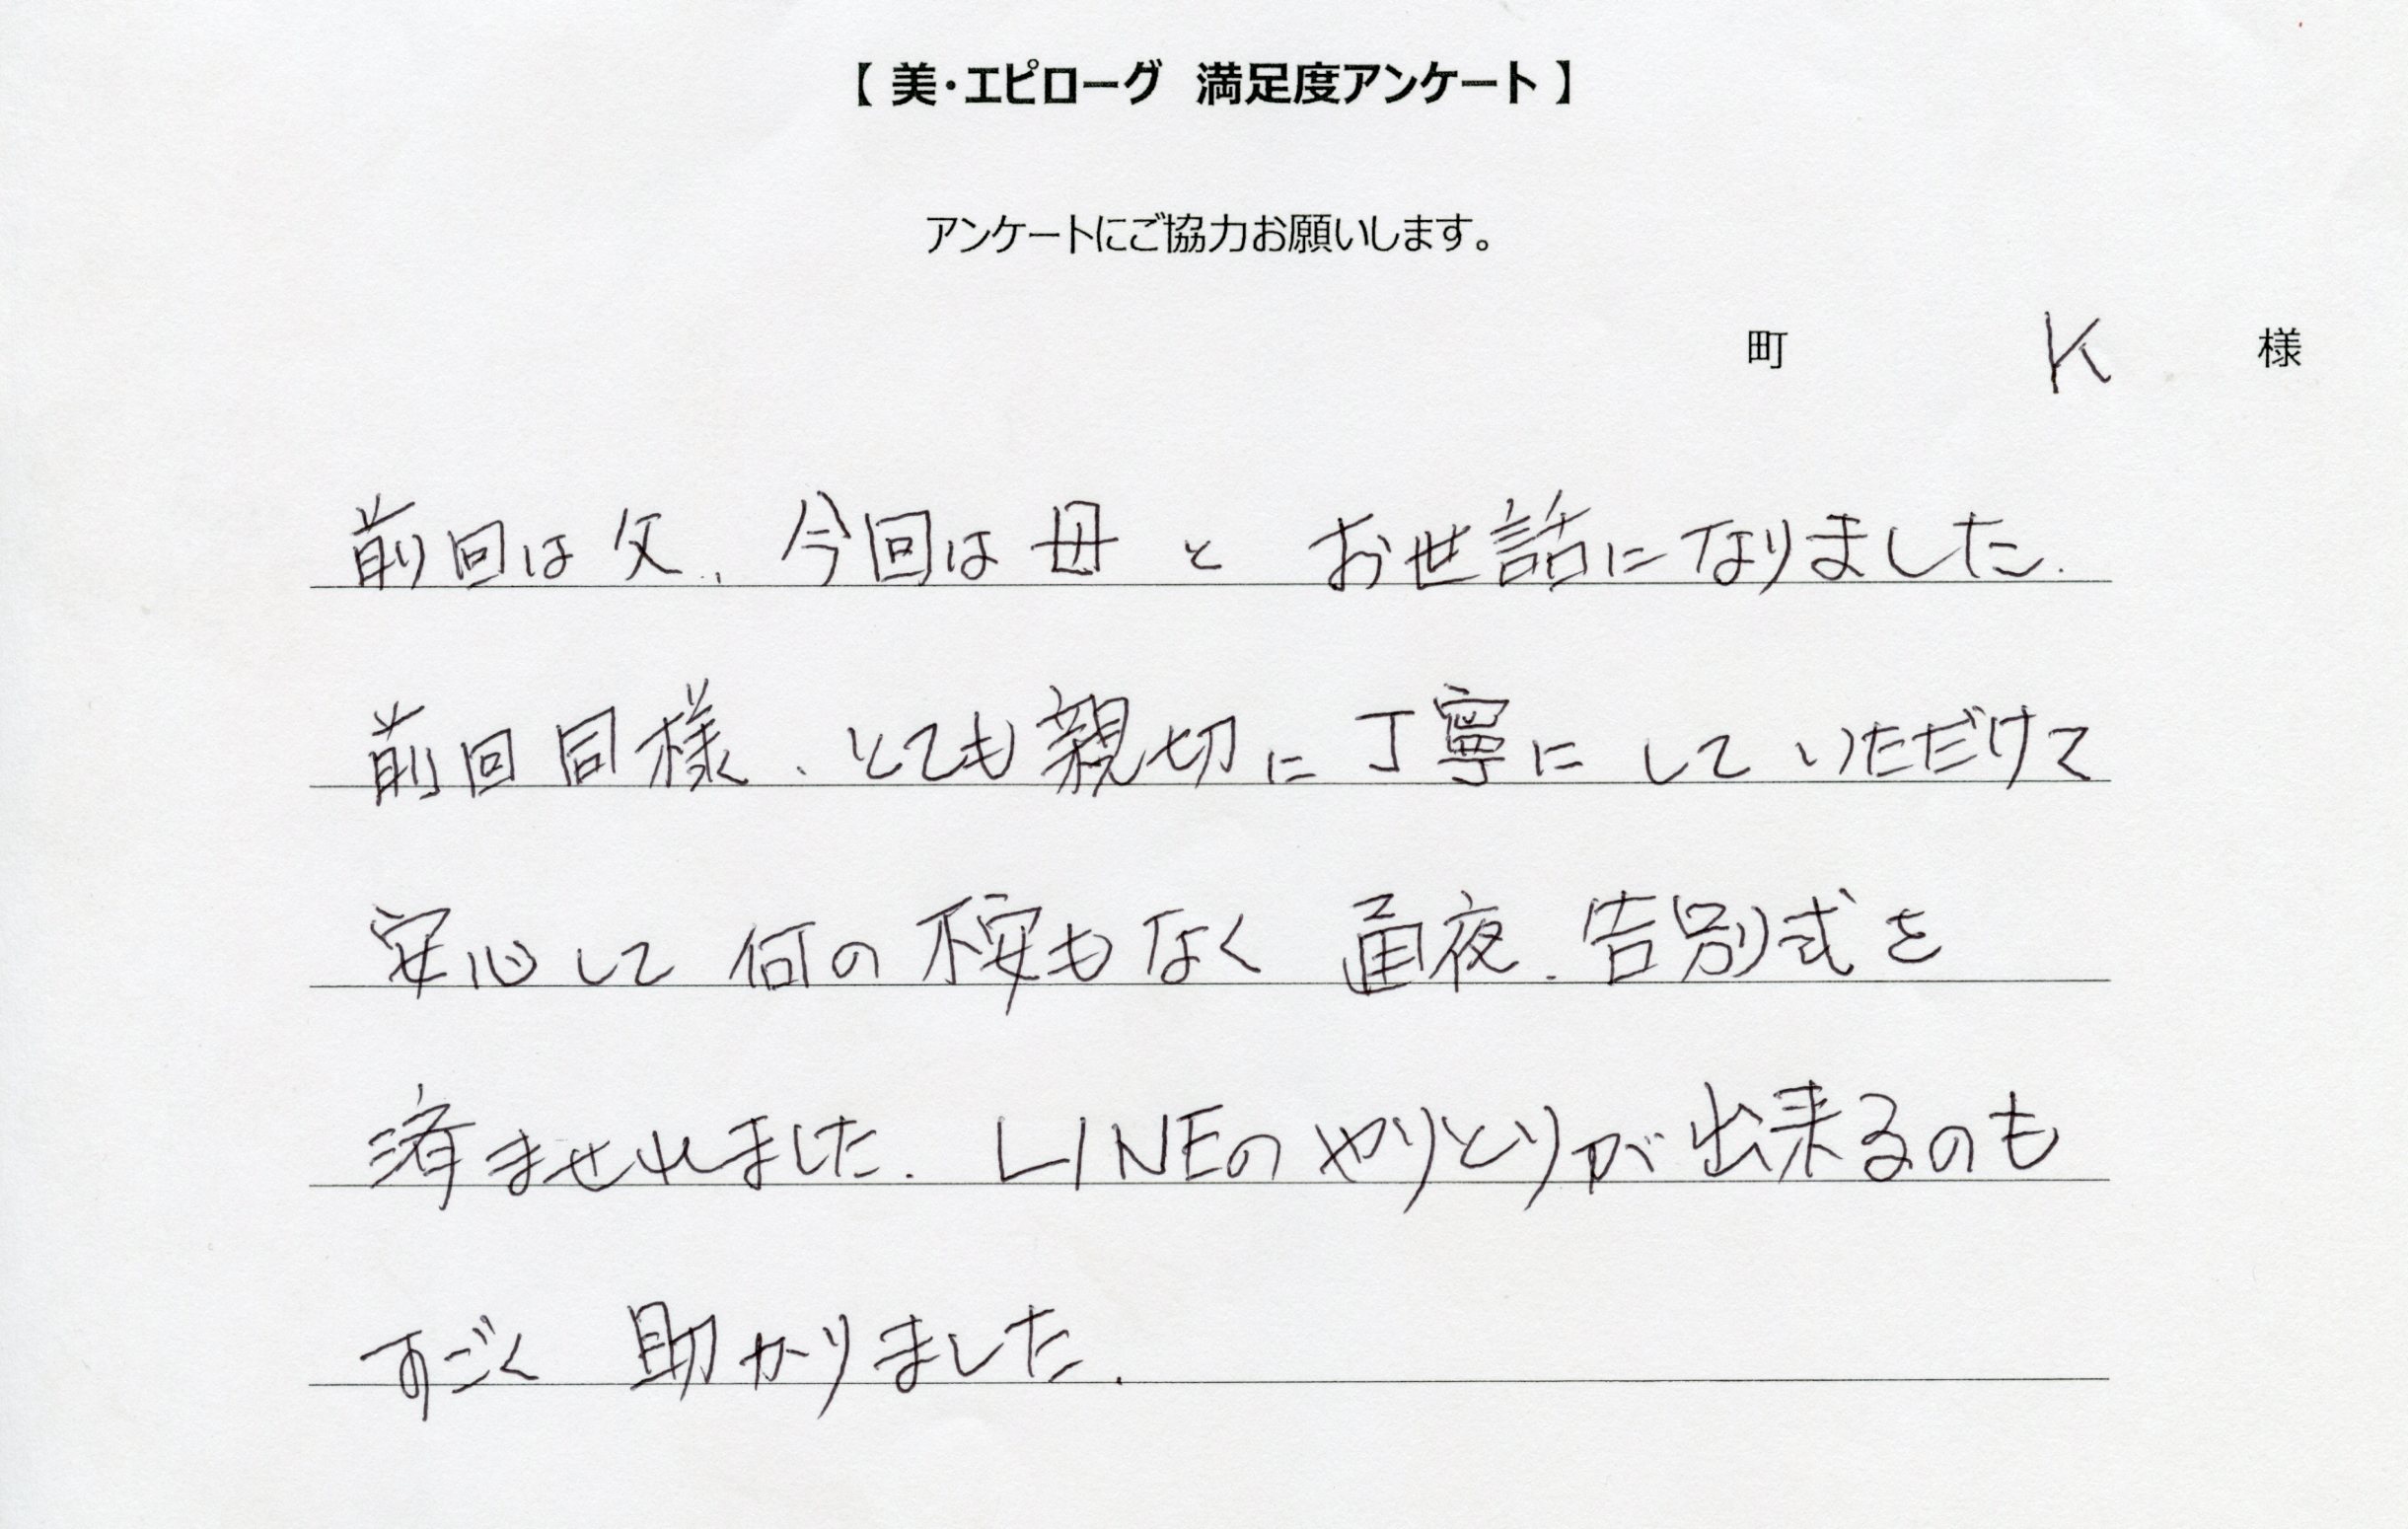 【 美・エピローグ 満足度アンケート 】
アンケートにご協力お願いします。
町 K 様
前回は父、今回は母と お世話になりました.
前回同様、とても親切に丁寧にしていただけて
安心して 何の不安もなく 通夜、告別式を
済ませれました. LINEのやりとりが出来るのも
すごく 助かりました.